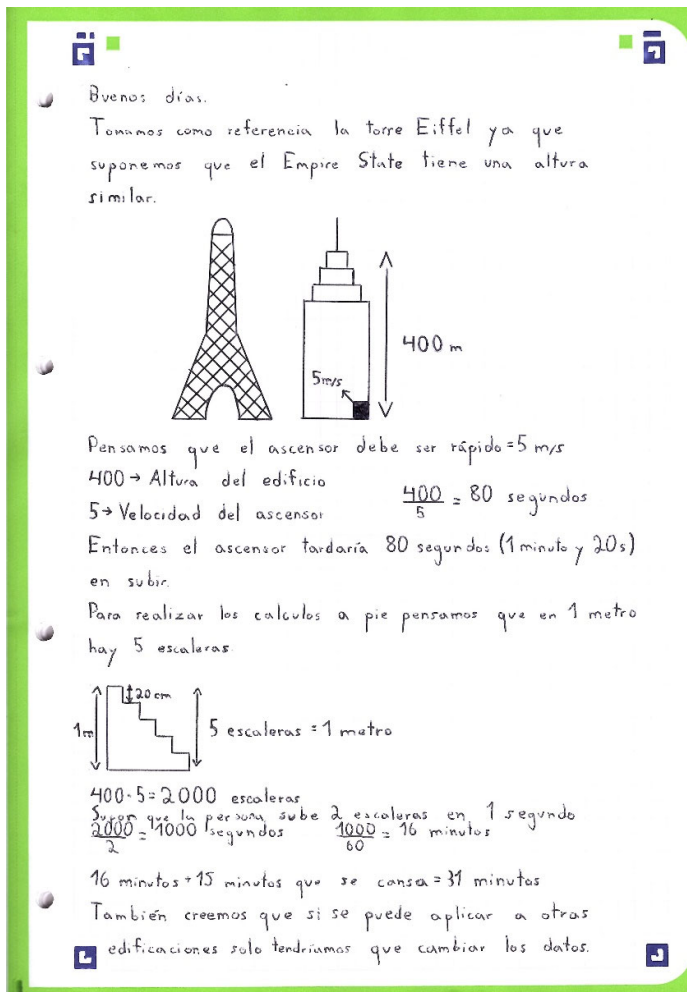 Buenos días.
Tomamos como referencia la torre Eiffel ya que
suponemos que el Empire State tiene una altura
similar.
400 m
5m/s
Pensamos que el ascensor debe ser rápido=5 m/s
400→Altura del edificio
5→Velocidad del ascensor
400/5 = 80 segundos
Entonces el ascensor tardaría 80 segundos (1 minuto y 20s)
en subir.
Para realizar los calculos a pie pensamos que en 1 metro
hay 5 escaleras.
20 cm
1m
5 escaleras = 1 metro
400·5=2000 escaleras
que la persona sube 2 escaleras en 1 segundo
2000/2 = 1000 segundos 1000/60 = 16 minutos
16 minutos+15 minutos que se cansa=31 minutos
También creemos que si se puede aplicar a otras
edificaciones solo tendríamos que cambiar los datos.